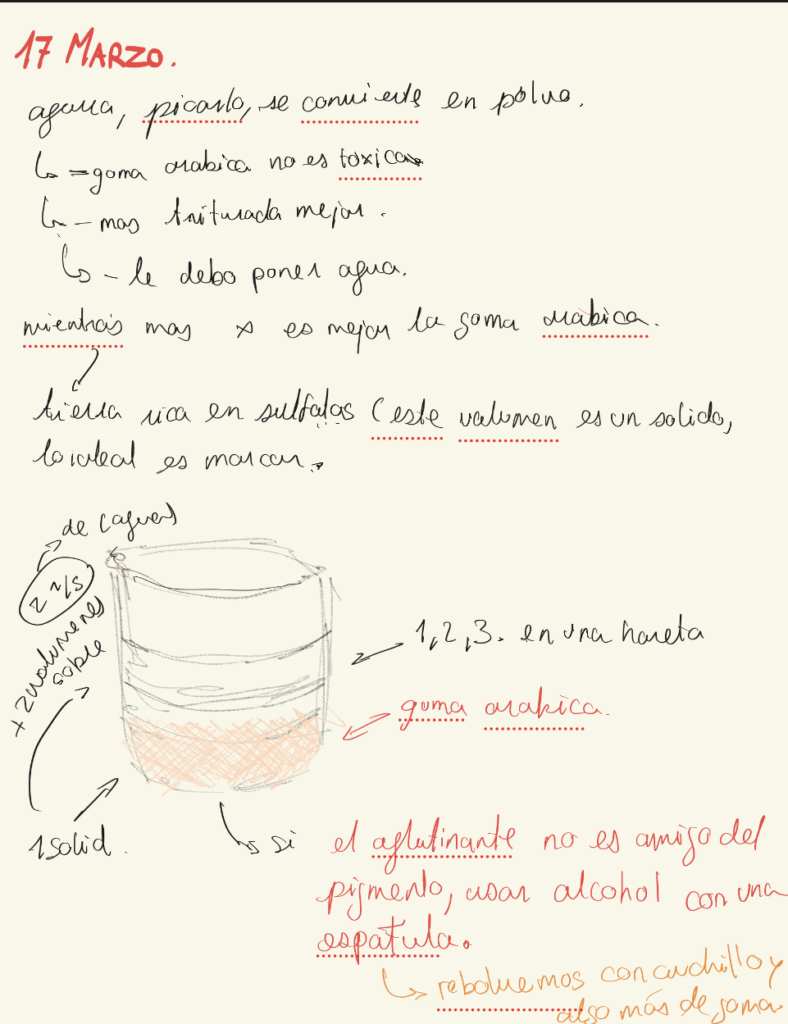 17 MARZO.
agarra, picarlo, se convierte en polvo.
↳ = goma arabica no es toxica
↳ - mas triturada mejor.
↳ - le debo poner agua.
mientras mas x es mejor la goma arabica.
tierra rica en sulfatos (este volumen es un solido,
lo ideal es marcar.
de (agua)
2 1/2
+ 2 volumenes
sobre
1, 2, 3. en una
goma arabica.
1 solid.
si el aglutinante no es amigo del
pigmento, usar alcohol con una
espatula.
↳ revolvemos con cuchillo y
algo más de goma.